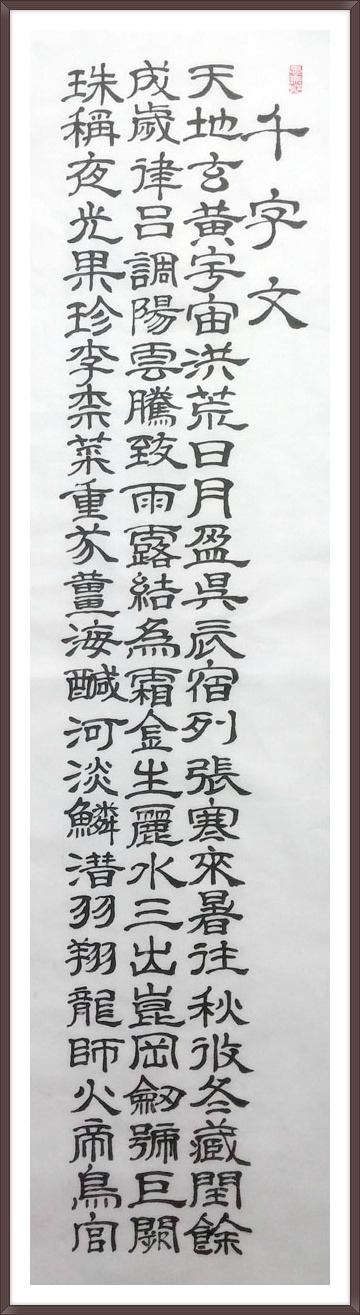 千字文
天地玄黃宇宙洪荒日月盈昃辰宿列張寒來暑往秋收冬藏閏餘
成歲律呂調陽雲騰致雨露結為霜金生麗水玉出崑岡劒號巨闕
珠稱夜光果珍李柰菜重芥薑海醎河淡鱗潜羽翔龍師火帝鳥官